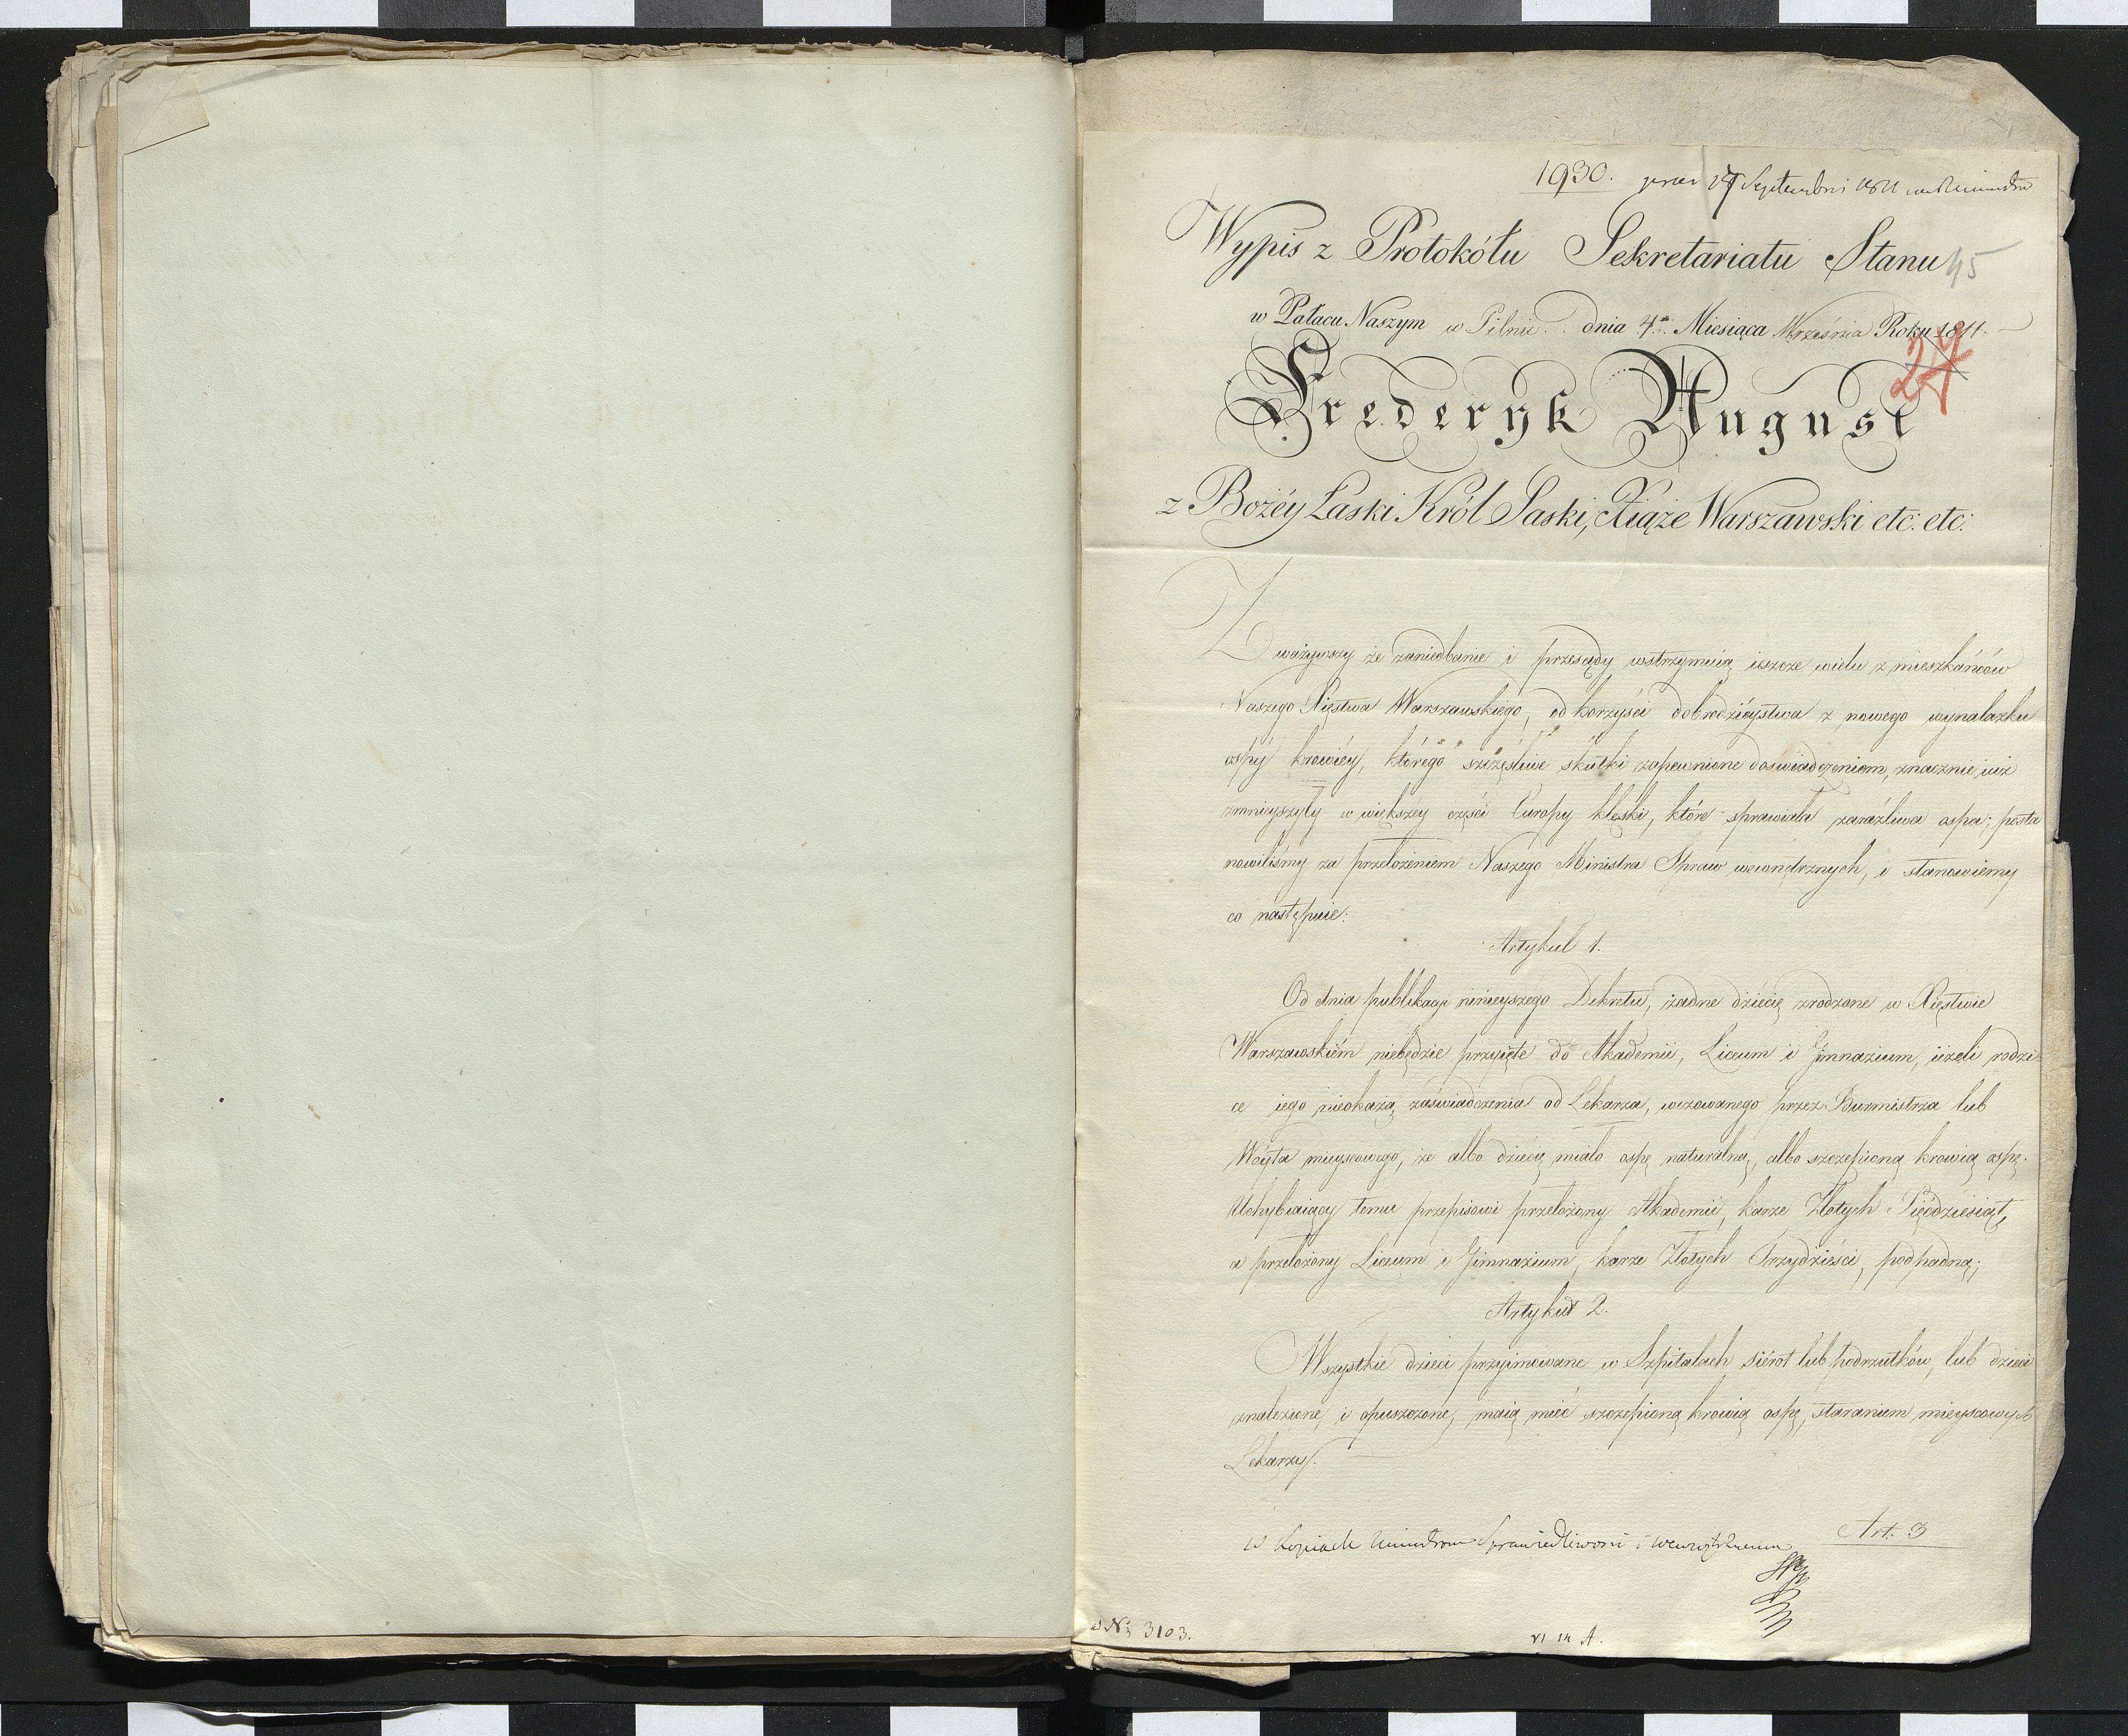 1930. 17 Septembris 1811
Wypis z Protokółu Sekretariatu Stanu 45
w Pałacu Naszym w Pilnic dnia 4. Miesiąca Września Roku 1811.
27
Frederyk August
z Bożéy Łaski Król Saski, Xiąże Warszawski etc: etc:
Zważywszy że zaniedbanie i przesądy wstrzymuią ieszcze wielu z mieszkańców
Naszego Xięstwa Warszawskiego, od korzyści dobrodzieystwa z nowego wynalazku
ospy krowiéy, którégo szczęśliwe skutki zapewnione doświadczeniem, znacznie iuż
zmnieyszyły w większey części Europy klęski, które sprawiała zaraźliwa ospa; posta
nowiliśmy za przełożeniem Naszego Ministra Spraw wewnętrznych, i stanowiemy
co następuie:
Artykuł 1.
Od dnia publikacyi ninieyszego Dekretu, żadne dziecię zrodzone w Xięstwie
Warszawskiém niebędzie przyięte do Akademii, Liceum i Gimnazium, iieżeli rodzi=
ce iego nieokażą zaświadczenia od Lekarza, wezwanego przez Burmistrza lub
Woyta mieyscowego, że albo dziecię miało ospę naturalną, albo szczepioną krowią ospę.
Uchybiaiący temu przepisowi przełożony Akademii, karze Złotych Pięćdziesiąt,
a przełożony Liceum i Gimnazium, karze Złotych Trzydzieści, podpadną;
Artykuł 2.
Wszystkie dzieci przyimowane w Szpitalach siérot lub podrzutków, lub dzieci
znalezione, i opuszczone, maią mieć szczepioną krowią ospę, staraniem mieyscowych
Lekarzy.
Art. 3
w kopiach Ministrom Sprawiedliwości i wewnętrznemu
No 3103.
VI 14 A.